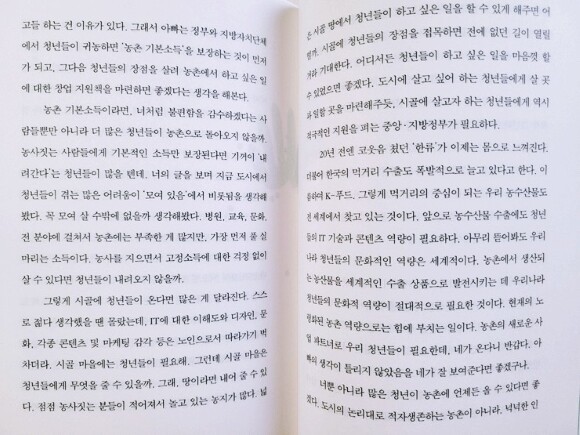 고들 하는 건 이유가 있다. 그래서 아빠는 정부와 지방자치단체
에서 청년들이 귀농하면 '농촌 기본소득'을 보장하는 것이 먼저
가 되고, 그다음 청년들의 장점을 살려 농촌에서 하고 싶은 일
에 대한 창업 지원책을 마련하면 좋겠다는 생각을 해본다.
농촌 기본소득이라면, 너처럼 불편함을 감수하겠다는 사
람들뿐만 아니라 더 많은 청년들이 농촌으로 돌아오지 않을까.
농사짓는 사람들에게 기본적인 소득만 보장된다면 기꺼이 '내
려간다'는 청년들이 많을 텐데. 너의 글을 보며 지금 도시에서
청년들이 겪는 많은 어려움이 '모여 있음'에서 비롯됨을 생각해
봤다. 꼭 모여 살 수밖에 없을까 생각해봤다. 병원, 교육, 문화.
전 분야에 걸쳐서 농촌에는 부족한 게 많지만, 가장 먼저 풀 실
마리는 소득이다. 농사를 지으면서 고정소득에 대한 걱정 없이
살 수 있다면 청년들이 내려오지 않을까.
그렇게 시골에 청년들이 온다면 많은 게 달라진다. 스스
로 젊다 생각했을 땐 몰랐는데, IT에 대한 이해도와 디자인, 문
화, 각종 콘텐츠 및 마케팅 감각 등은 노인으로서 따라가기 벅
차더라. 시골 마을에는 청년들이 필요해. 그런데 시골 마을은
청년들에게 무엇을 줄 수 있을까. 그래, 땅이라면 내어 줄 수 있
다. 점점 농사짓는 분들이 적어져서 놀고 있는 농지가 많다. 넓
은 시골 땅에서 청년들이 하고 싶은 일을 할 수 있게 해주면 어
떨까. 시골에 청년들의 장점을 접목하면 전에 없던 길이 열릴
거라 기대한다. 어디서든 청년들이 하고 싶은 일을 마음껏 할
수 있었으면 좋겠다. 도시에 살고 싶어 하는 청년들에게 살 곳
과 일할 곳을 마련해주듯, 시골에 살고자 하는 청년들에게 역시
적극적인 지원을 펴는 중앙·지방정부가 필요하다.
20년 전엔 코웃음 쳤던 '한류'가 이제는 몸으로 느껴진다.
더불어 한국의 먹거리 수출도 폭발적으로 늘고 있다고 한다. 이
름하여 K-푸드. 그렇게 먹거리의 중심이 되는 우리 농수산물도
전 세계에서 찾고 있는 것이다. 앞으로 농수산물 수출에도 청년
들의 IT 기술과 콘텐츠 역량이 필요하다. 아무리 뜯어봐도 우리
나라 청년들의 문화적인 역량은 세계적이다. 농촌에서 생산되
는 농산물을 세계적인 수출 상품으로 발전시키는 데 우리나라
청년들의 문화적 역량이 절대적으로 필요한 것이다. 현재의 노
령화된 농촌 역량으로는 힘에 부치는 일이다. 농촌의 새로운 사
업 파트너로 우리 청년들이 필요한데, 네가 온다니 반갑다. 아
빠의 생각이 틀리지 않았음을 네가 잘 보여준다면 좋겠구나.
너뿐 아니라 많은 청년이 농촌에 언제든 올 수 있다면 좋
겠다. 도시의 논리대로 적자생존하는 농촌이 아니라, 넉넉한 인